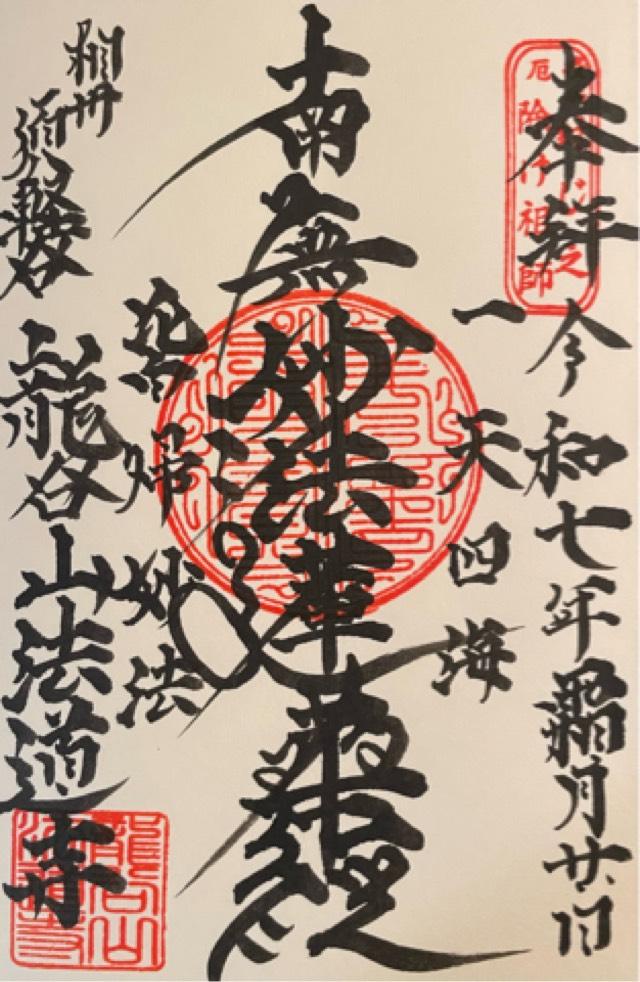 奉拝 令和七年霜月廿日
厄除け祖師
一天四海
南無妙法蓮華経
皆帰妙法
相州
龍谷山法道寺
龍谷山